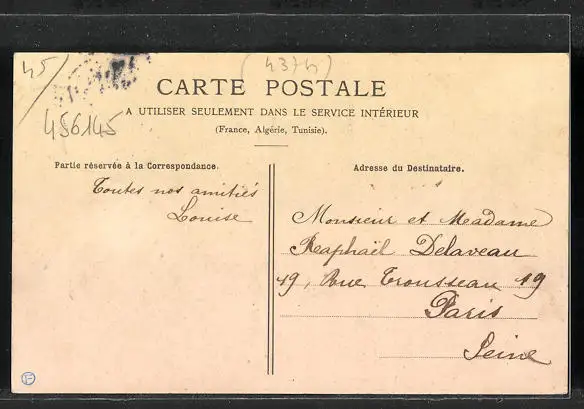 45
4374
456145
CARTE POSTALE
A UTILISER SEULEMENT DANS LE SERVICE INTÉRIEUR
(France, Algérie, Tunisie).
Partie réservée à la Correspondance.
Toutes nos amitiés
Louise
Adresse du Destinataire.
Monsieur et Madame
Raphaël Delaveau
19, Rue Trousseau 19
Paris
Seine